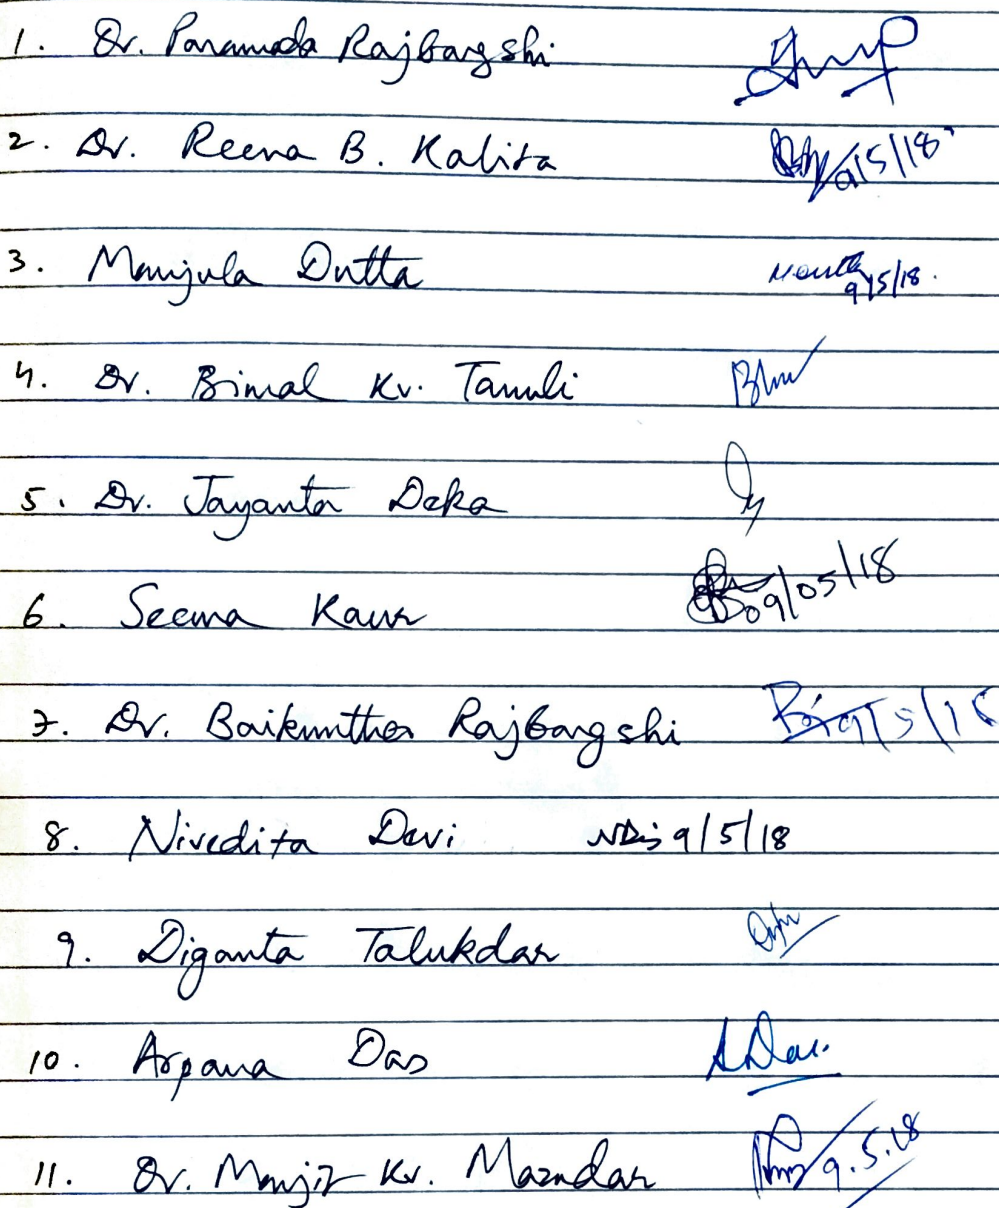 1. Dr. Paramada Rajbangshi
2. Dr. Reena B. Kalita 9/5/18
3. Manjula Dutta 9/5/18.
4. Dr. Bimal Kr. Tamuli
5. Dr. Jayanta Deka
6. Seema Kaur 09/05/18
7. Dr. Baikuntha Rajbangshi 9/5/18
8. Nivedita Devi NDevi 9/5/18
9. Diganta Talukdar
10. Arpana Das ADas.
11. Dr. Manjit Kr. Mazumdar 9.5.18